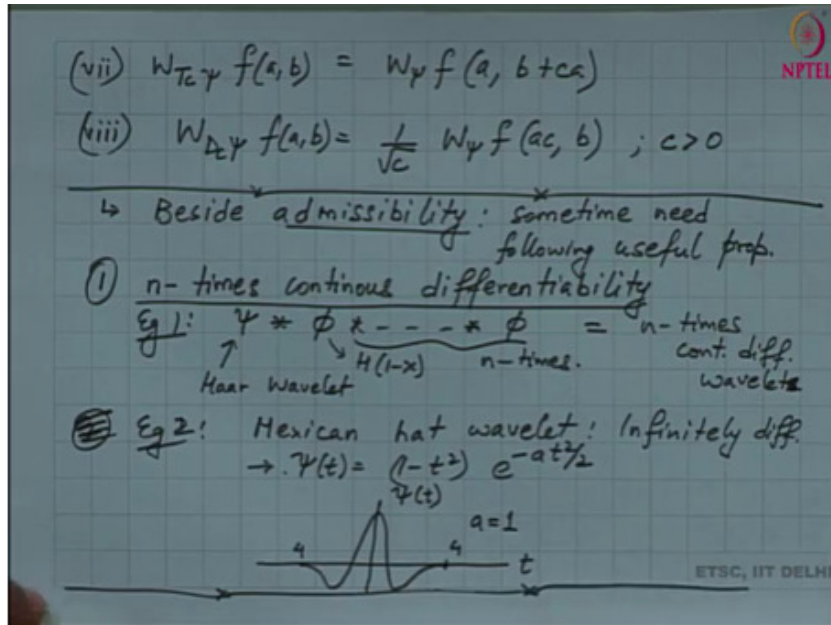 (vii) W_{T_c ψ} f(a,b) = W_ψ f(a, b+ca)
NPTEL
(viii) W_{D_c ψ} f(a,b) = 1/√c W_ψ f(ac, b) ; c>0
↳ Beside admissibility : sometime need
following useful prop.
① n-times continous differentiability
Eg 1: ψ * ϕ * - - - * ϕ = n-times
H(1-x) n-times. cont. diff.
Haar wavelet wavelets
Eg 2: Mexican hat wavelet: Infinitely diff.
→ ψ(t) = (1-t²) e^{-at²/2}
ψ(t)
a=1
4 4 t
ETSC, IIT DELHI